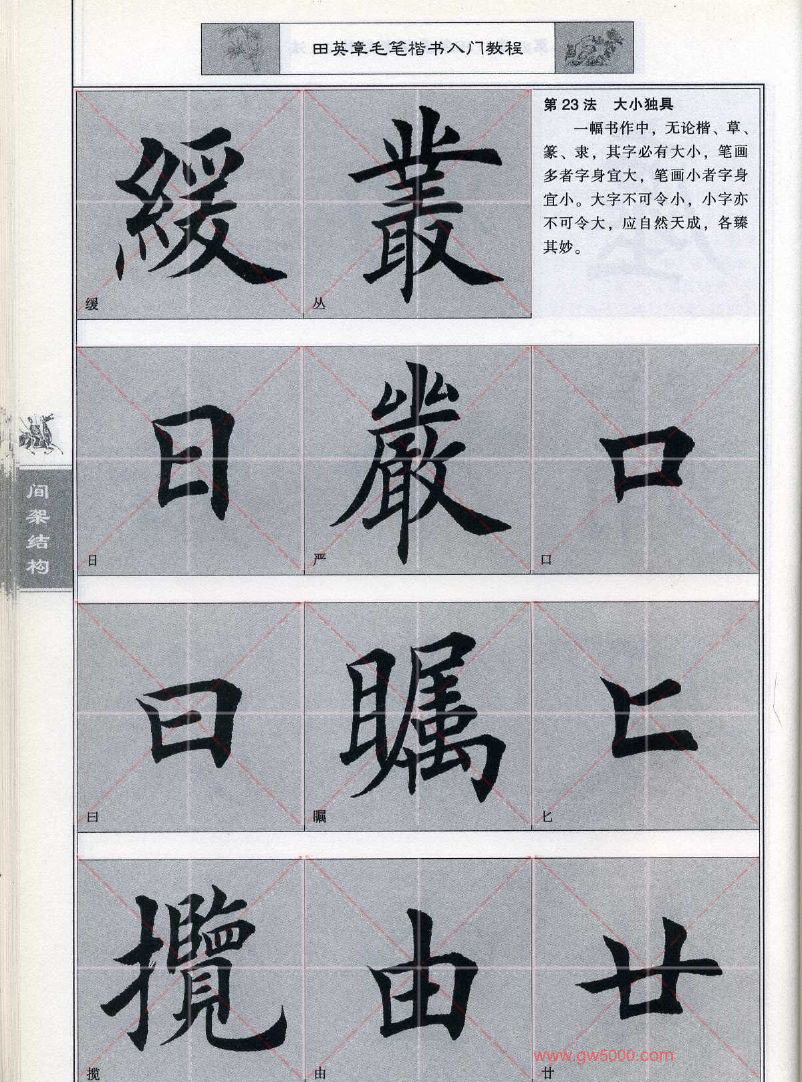 田英章毛笔楷书入门教程
緩 叢
第 23 法 大小独具
一幅书作中，无论楷、草、
篆、隶，其字必有大小，笔画
多者字身宜大，笔画小者字身
宜小。大字不可令小，小字亦
不可令大，应自然天成，各臻
其妙。
缓 丛
日 嚴 口
日 严 口
间架结构
曰 瞩 匕
曰 瞩 匕
攬 由 廿
揽 由 廿
www.gw5000.com